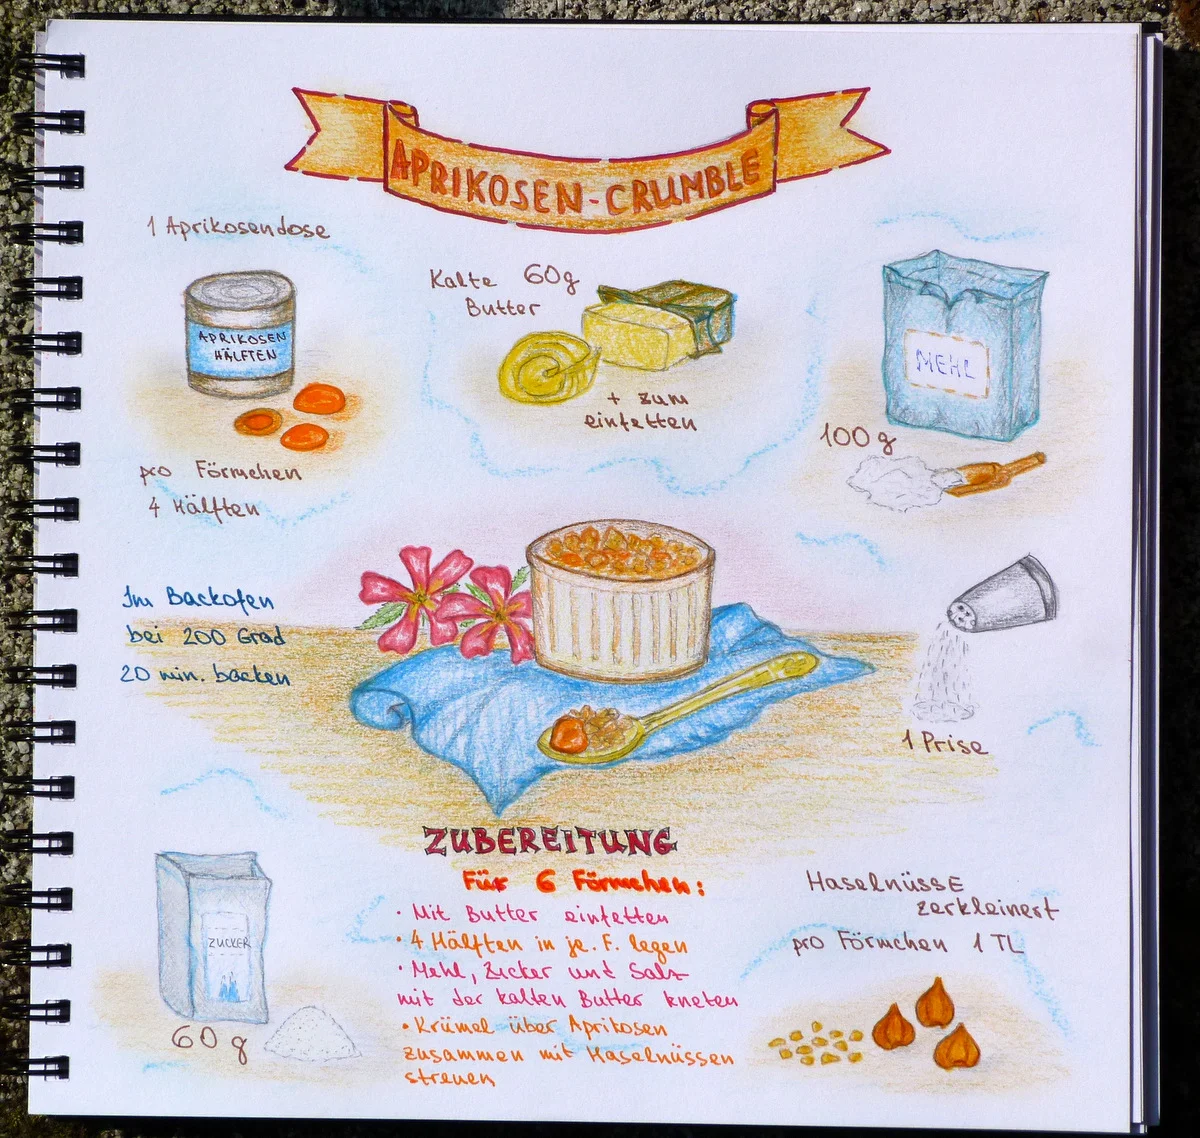 APRIKOSEN-CRUMBLE
1 Aprikosendose
APRIKOSEN
HÄLFTEN
pro Förmchen
4 Hälften
Kalte 60g
Butter
+ zum
einfetten
MEHL
100g
Im Backofen
bei 200 Grad
20 min. backen
1 Prise
ZUCKER
60g
ZUBEREITUNG
Für 6 Förmchen:
· Mit Butter einfetten
· 4 Hälften in je. F. legen
· Mehl, Zucker und Salz
mit der kalten Butter kneten
· Krümel über Aprikosen
zusammen mit Haselnüssen
streuen
HaselnüssE
zerkleinert
pro Förmchen 1 TL